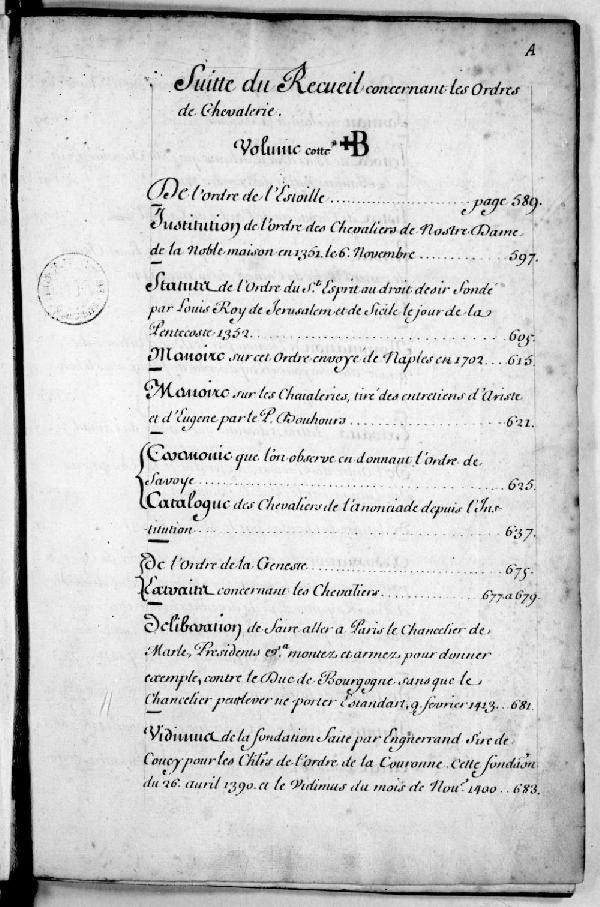 A
Suitte du Recueil concernant les Ordres
de Chevalerie.
Volume cotté B
De l'ordre de l'Estoille .......... page 589.
Institution de l'ordre des Chevaliers de Nostre Dame
de la Noble maison en 1351. le 6. Novembre .......... 597.
Statuts de l'Ordre du St. Esprit au droit desir fondé
par Louis Roy de Jerusalem et de Sicile le jour de la
Pentecoste 1352 .......... 605.
Memoire sur cet Ordre envoyé de Naples en 1702 ... 615.
Memoire sur les Chevaleries, tiré des entretiens d'Ariste
et d'Eugene par le P. Bouhours .......... 621.
Ceremonie que l'on observe en donnant l'ordre de
Savoye .......... 625.
Catalogue des Chevaliers de l'anonciade depuis l'Ins-
titution .......... 637.
De l'Ordre de la Geneste .......... 675.
Extraits concernant les Chevaliers .......... 677 a 679.
Deliberation de faire aller a Paris le Chancelier de
Marle, Presidents &ca. montez et armez pour donner
exemple, contre le Duc de Bourgogne sans que le
Chancelier peut lever ne porter Estandart, 9 fevrier 1413 .. 681.
Vidimus de la fondation faite par Engnerrand Sire de
Coucy pour les Chlrs de l'ordre de la Couronne. Cette fondaon
du 26. avril 1390. et le Vidimus du mois de Nove. 1400 .. 683.